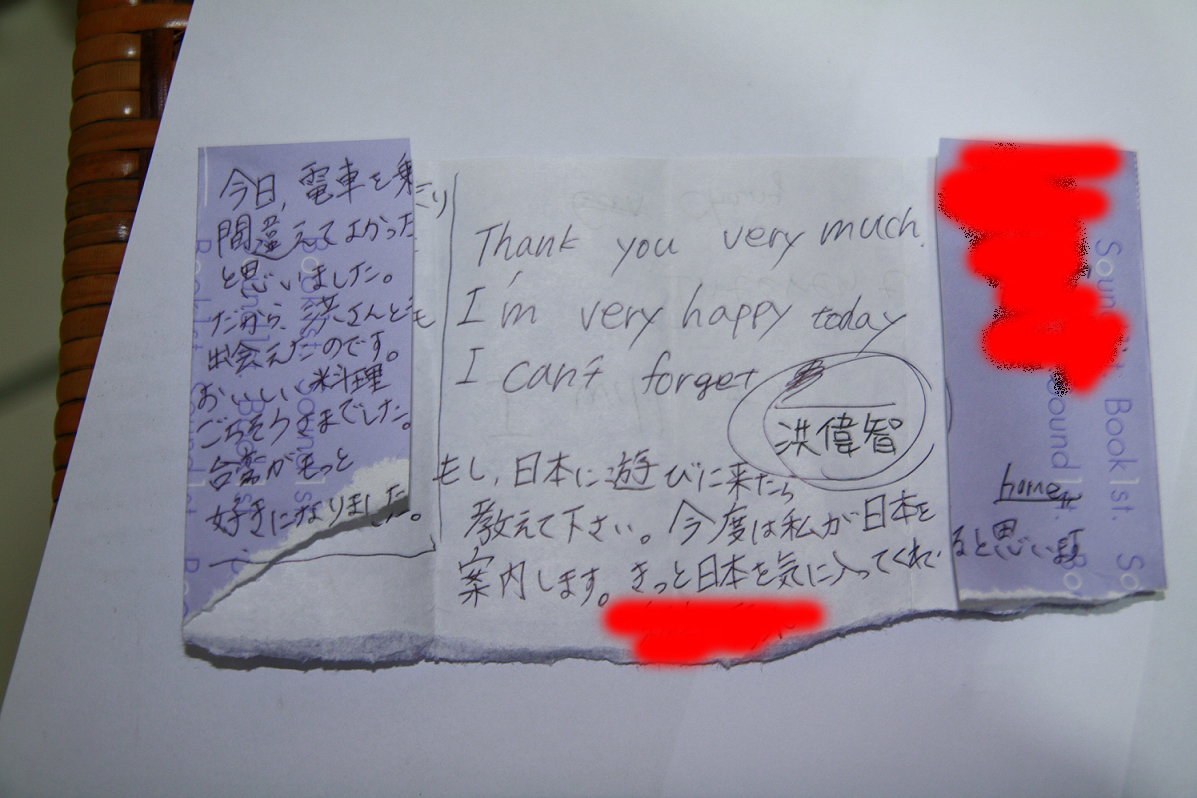 今日、電車を乗り
間違えてよかった
と思いました。
だから、洪さんとも
出会えたのです。
おいしい料理
ごちそうさまでした。
台湾がもっと
好きになりました。
Thank you very much.
I'm very happy today
I can't forget
洪偉智
もし、日本に遊びに来たら
教えて下さい。今度は私が日本を
案内します。きっと日本を気に入ってくれると思います
home
Book1st.